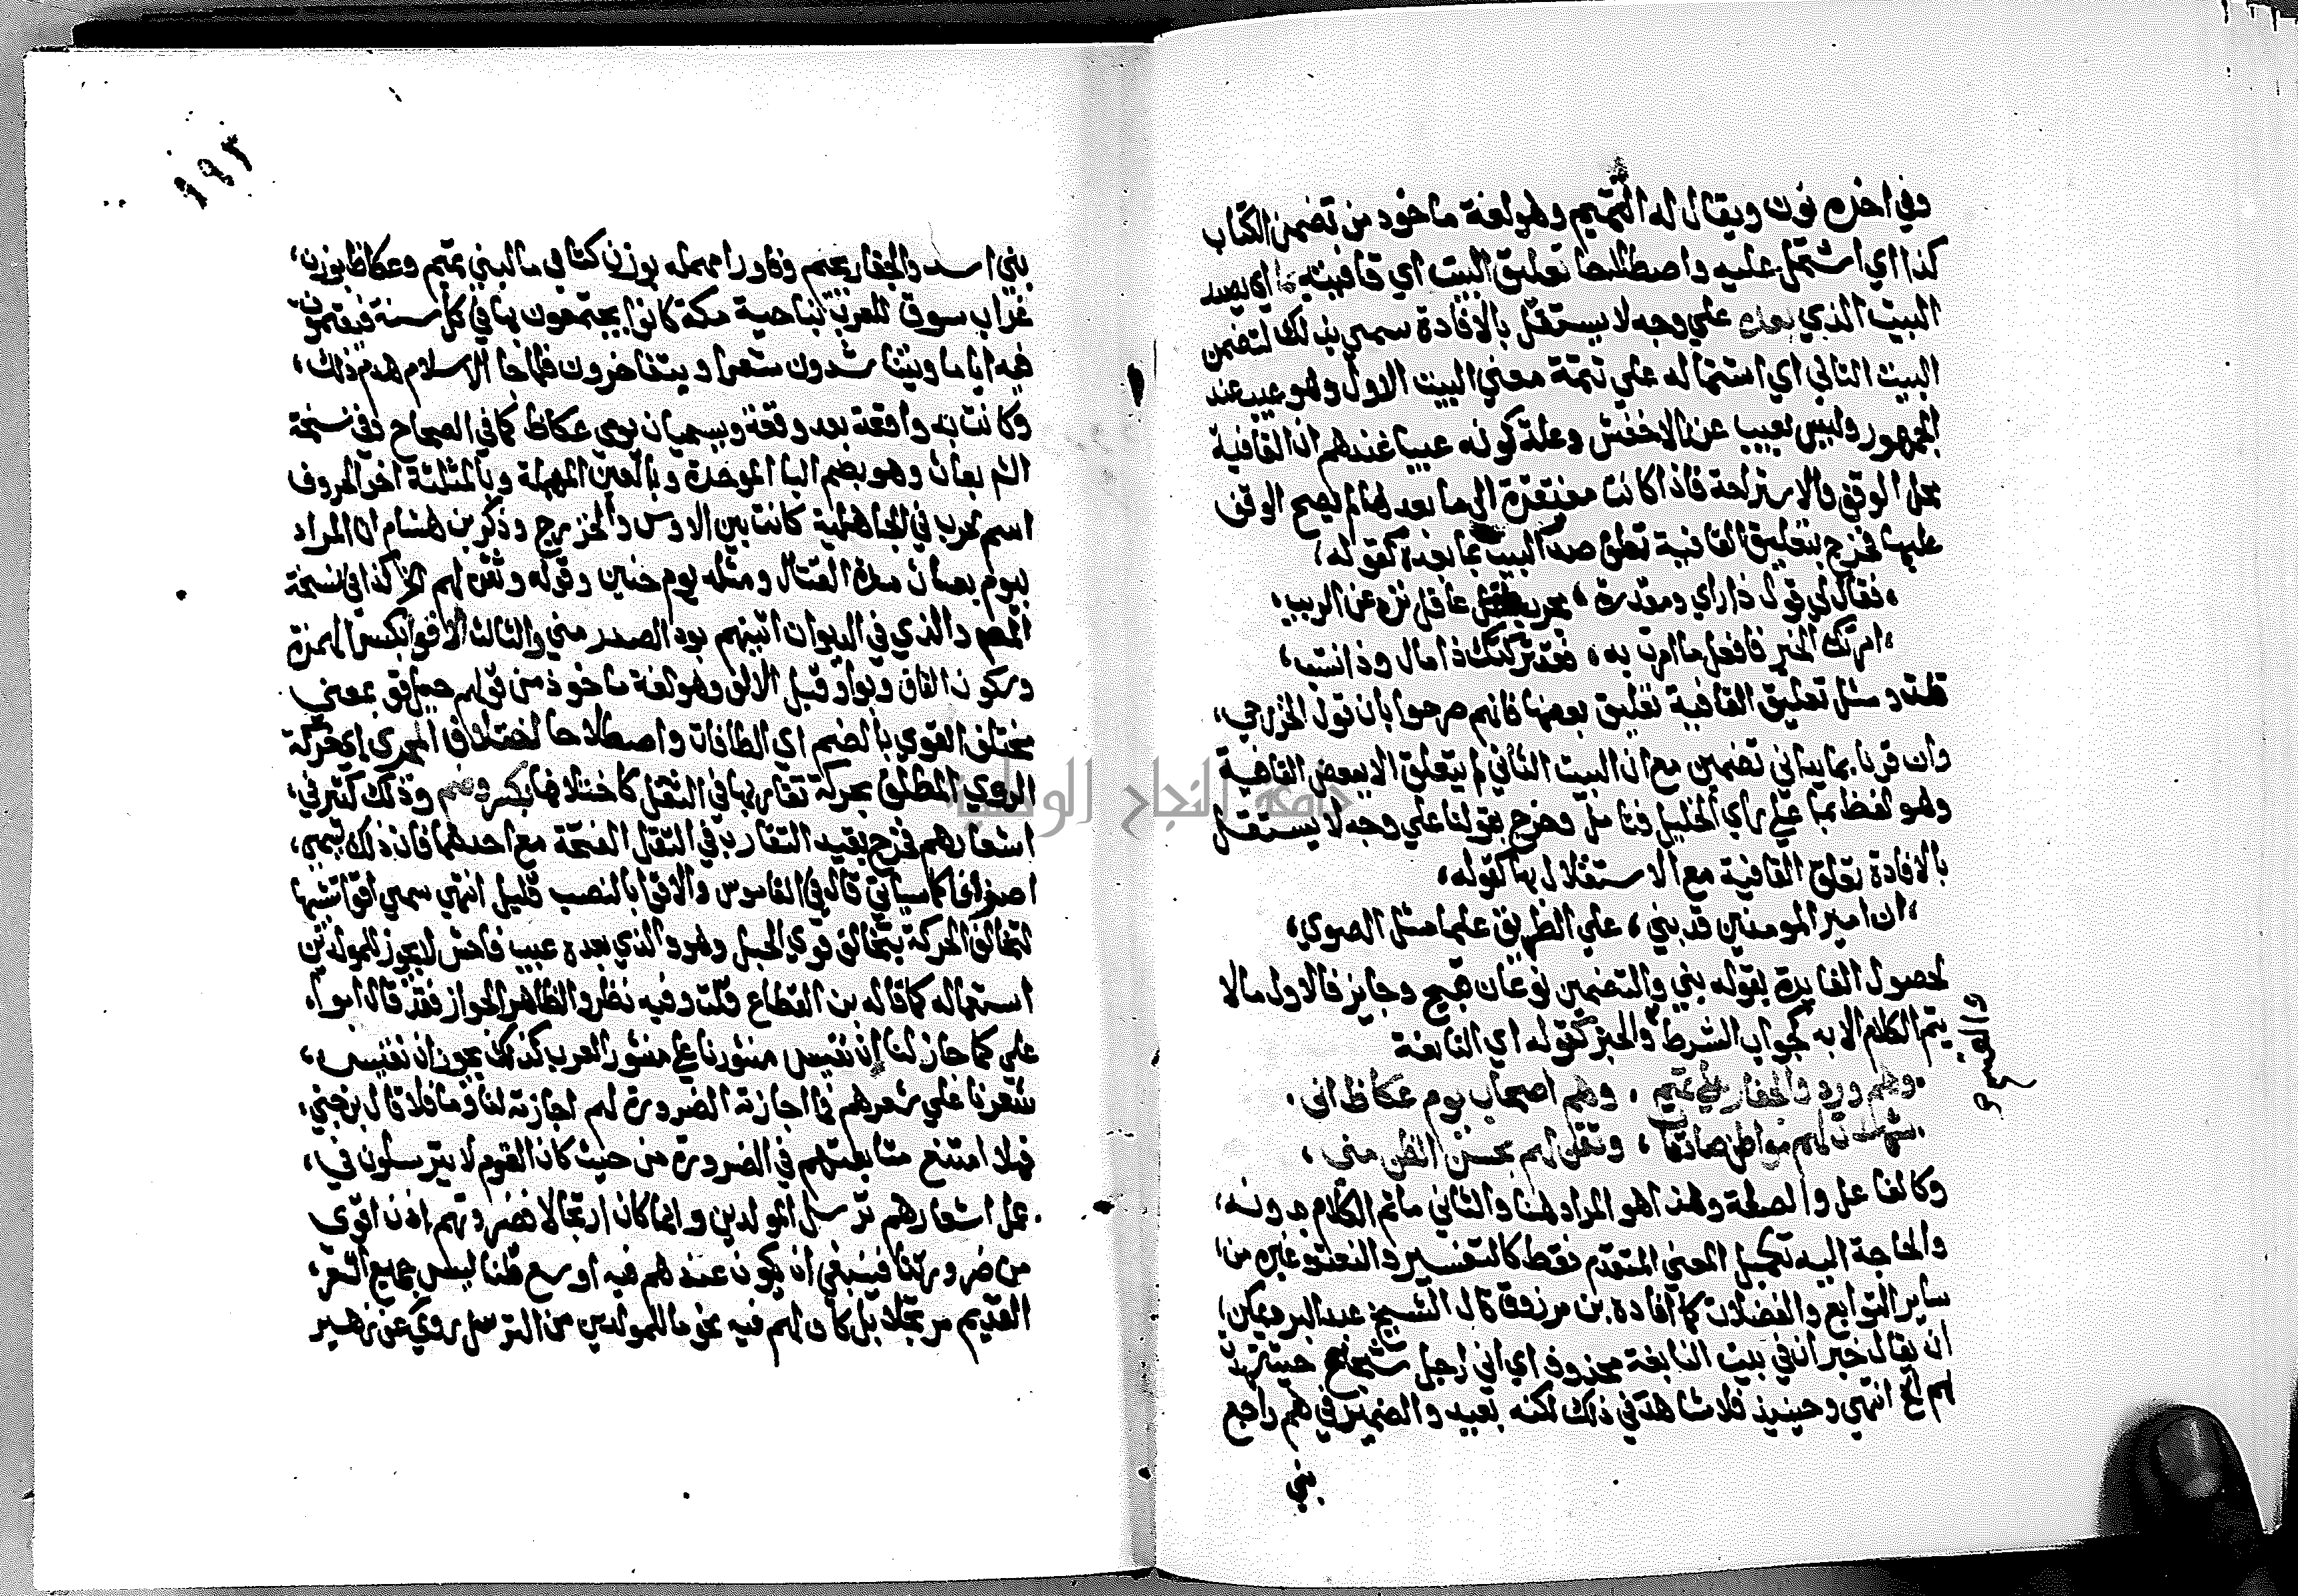 وفي اخره نون ويقال له التتميم وهو لغة ماخوذ من تضمن الكتاب
كذا اي اشتمل عليه واصطلاحا تعليق البيت اي قافيته اي بصدر
البيت الذي بعده علي وجه لا يستقل بالافادة سمي بذلك لتضمن
البيت الثاني اي اشتماله علي تتمة معني البيت الاول وهو عيب عند
الجمهور وليس بعيب عند الاخفش وعلة كونه عيبا عندهم ان القافية
محل الوقف والاستراحة فاذا كانت مفتقرة الي ما بعدها لم يصح الوقف
عليها فخرج بتعليق القافية تعلق صدر البيت بما بعده كقوله
فقال لي قول ذا راي ومقدرة ، مجرب عاقل نزه عن الريب
امرتك الخير فافعل ما امرت به ، فقد تركتك ذا مال وذا نشب
مثل تعليق القافية تعليق بعضها فانهم صرحوا بان قول الخزرجي
مع ان البيت الثاني لم يتعلق الا ببعض القافية
وهو لفظ بما علي راي الخليل فتامل وخرج بقولنا علي وجه لا يستقل
بالافادة تعلق القافية مع الاستقلال بها كقوله
ان امير المومنين قد بني ، علي الطريق علما مثل الصوي
لحصول الفايدة بقوله بني والتضمين نوعان قبيح وجايز فالاول مالا
يتم الكلام الا به كجواب الشرط والخبر كقوله اي النابغة
والقسم
وهم وردوا الجفار علي تميم ، وهم اصحاب يوم عكاظ اني
شهدت لهم مواطن صادقات ، بحسن الظن مني
وكالفاعل والصلة وهذا هو المراد هنا والثاني ما تم الكلام بدونه
والحاجة اليه تكميل المعني المتقدم فقط كالتفسير والنعت وغيره من
ساير التوابع والفضلات كما افاده بن مرزوق قال الشيخ عبد البر ويمكن
ان يقال خبر ان في بيت النابغة محذوف اي اني رجل شجاع
لهم الخ انتهي وحينيذ فلا شاهد في ذلك لكنه بعيد والضمير في هم راجع
بني
١٩٣
بني اسد والجفار بجيم وفاء وراء مهمله بوزن كتاب ماء لبني تميم وعكاظ بوزن
غراب سوق للعرب بناحية مكة كانوا يجتمعون بها في كل سنة فيقيمون
فيه اياما ويتناشدون شعرا ويتفاخرون فلما جا الاسلام هدم ذلك
وكانت به واقعة بعد وقعة ويسميان يومي عكاظ كما في الصحاح وفي نسخة
بعاث وهو بضم البا الموحدة وبالعين المهملة وبالمثلثة اخر الحروف
اسم لحرب في الجاهلية كانت بين الاوس والخزرج وذكر بن هشام ان المراد
بيوم بعاث مدة القتال ومثله يوم حنين وقوله لهم الخ كذا في نسخة
والذي في الديوان اتيتهم بود الصدر مني والثالث الاقوا بكسر الهمزة
وسكون القاف وبواو قبل الالف وهو لغة ماخوذ من قولهم حبل اقو بمعني
مختلف القوي بالضم اي الطاقات واصطلاحا اختلاف المجري اي حركة
الروي المطلق بحركة تقاربها في الثقل كاختلافها بكسر وضم وذلك كثير في
اشعارهم فخرج بقيد التقارب في الثقل الفتحة مع احدهما فان ذلك يسمي
اصرافا كما سياتي قال في القاموس والاقوا بالنصب قليل انتهي سمي اقوا تشبيها
لتخالف الحركة بتخالف قوي الحبل وهو والذي بعده عيب فاحش لا يجوز للمولدين
استعماله كما قاله بن القطاع قلت وفيه نظر والظاهر الجواز فقد قال ابو
علي كما جاز لنا ان نقيس منثورنا علي منثور العرب كذلك يجوز ان نقيس
شعرنا علي شعرهم فما اجازته الضرورة لهم اجازته لنا وما لا فلا قال بن جني
فهلا امتنع متابعتهم في الضرورة من حيث كان القوم لا يترسلون في
عمل اشعارهم ترسل المولدين وانما كان ارتجالا فضرورتهم اذن اقوي
من ضرورتنا فينبغي ان يكون عندهم فيه اوسع قلنا ليس جميع الشعر
القديم مرتجلا بل كان لهم فيه نحو ما للمولدين من الترسل روي عن زهير